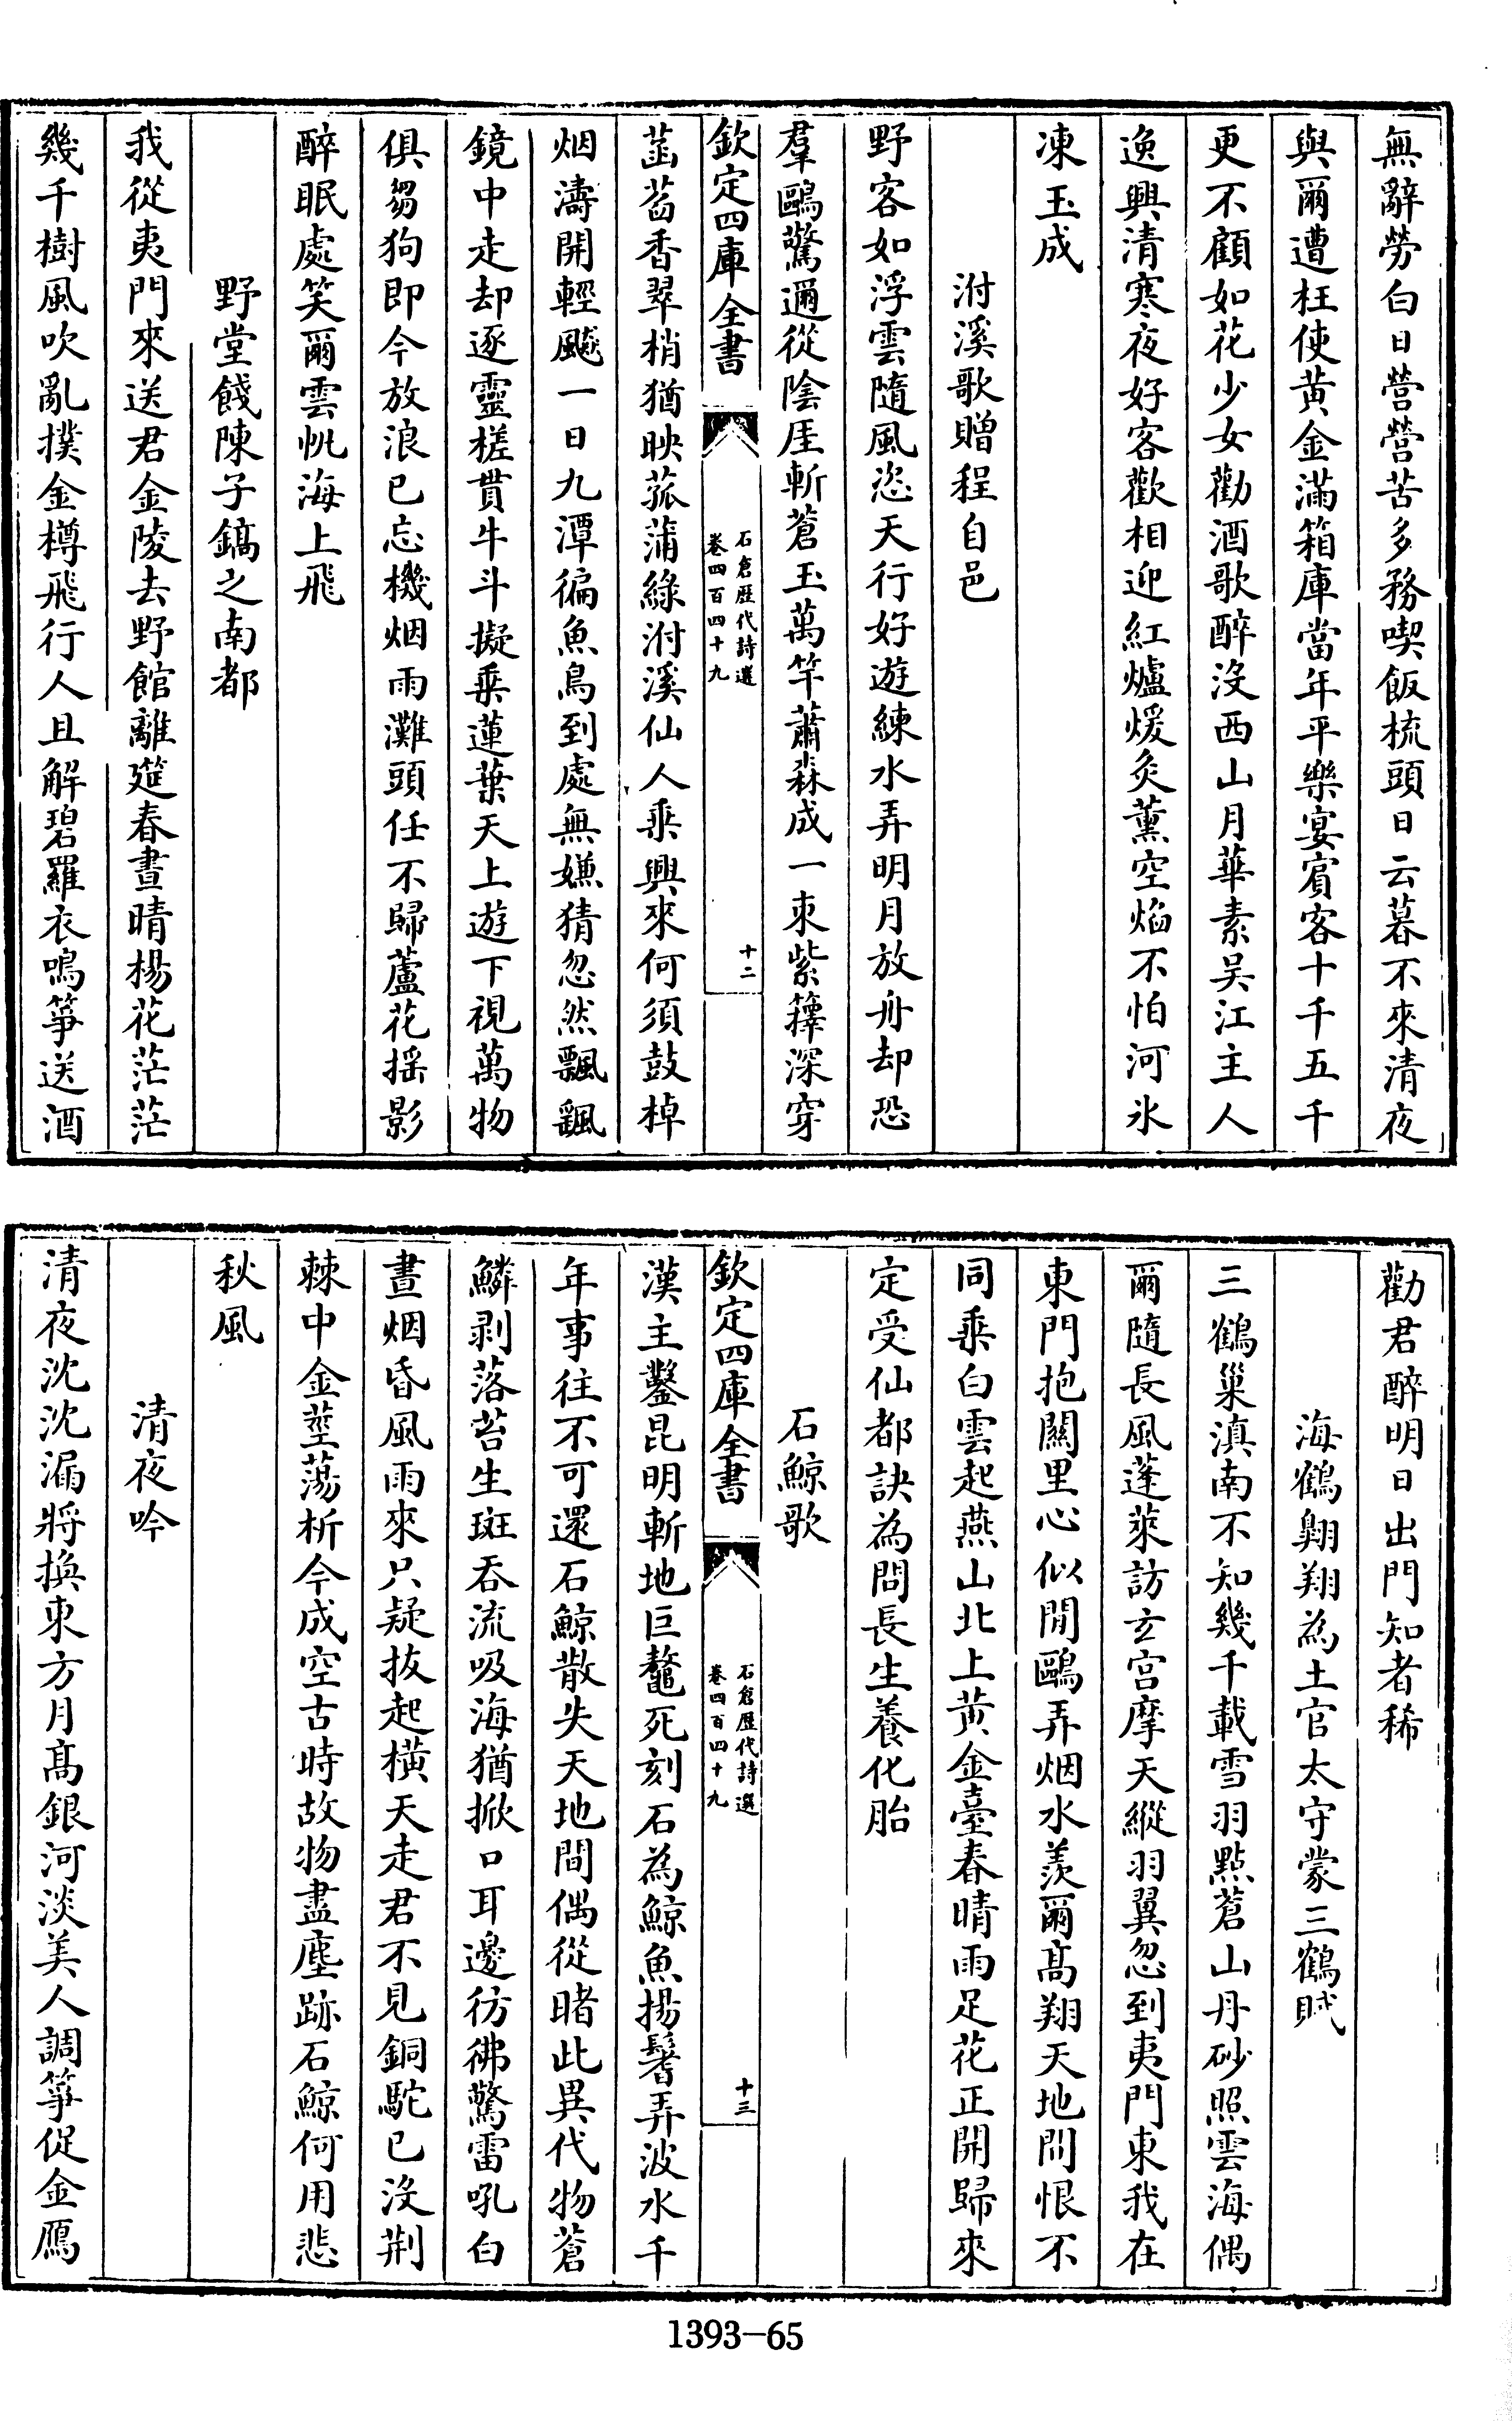 無辭勞白日營營苦多務喫飯梳頭日云暮不來清夜
與爾遭枉使黄金滿箱庫當年平樂宴賓客十千五千
更不顧如花少女勸酒歌醉沒西山月華素吳江主人
逸興清寒夜好客歡相迎紅爐煖炙薰空焰不怕河氷
凍玉成
泭溪歌贈程自邑
野客如浮雲隨風恣天行好遊練水弄明月放舟却恐
羣鷗驚邇從陰厓斬蒼玉萬竿蕭森成一束紫籜深穿
欽定四庫全書
石倉歷代詩選
卷四百四十九
十二
菡萏香翠梢猶映菰蒲綠泭溪仙人乘興來何須鼓棹
烟濤開輕颸一日九潭徧魚鳥到處無嫌猜忽然飄飄
鏡中走却逐靈槎貫牛斗擬乘蓮葉天上遊下視萬物
俱芻狗即今放浪已忘機烟雨灘頭任不歸蘆花揺影
醉眠處笑爾雲帆海上飛
野堂餞陳子鎬之南都
我從夷門來送君金陵去野館離筵春晝晴楊花茫茫
幾千樹風吹亂撲金樽飛行人且解碧羅衣鳴筝送酒
勸君醉明日出門知者稀
海鶴翺翔為土官太守蒙三鶴賦
三鶴巢滇南不知幾千載雪羽點蒼山丹砂照雲海偶
爾隨長風蓬萊訪玄宫摩天縱羽翼忽到夷門東我在
東門抱關里心似閒鷗弄烟水羨爾髙翔天地間恨不
同乘白雲起燕山北上黄金臺春晴雨足花正開歸來
定受仙都訣為問長生養化胎
石鯨歌
欽定四庫全書
石倉歷代詩選
卷四百四十九
十三
漢主鑿昆明斬地巨鼇死刻石為鯨魚揚鬐弄波水千
年事往不可還石鯨散失天地間偶從睹此異代物蒼
鱗剥落苔生斑吞流吸海猶掀口耳邊彷彿驚雷吼白
晝烟昏風雨來只疑拔起横天走君不見銅駝已沒荆
棘中金莖蕩析今成空古時故物盡塵跡石鯨何用悲
秋風
清夜吟
清夜沈沈漏將換東方月髙銀河淡美人調筝促金鴈
1393-65